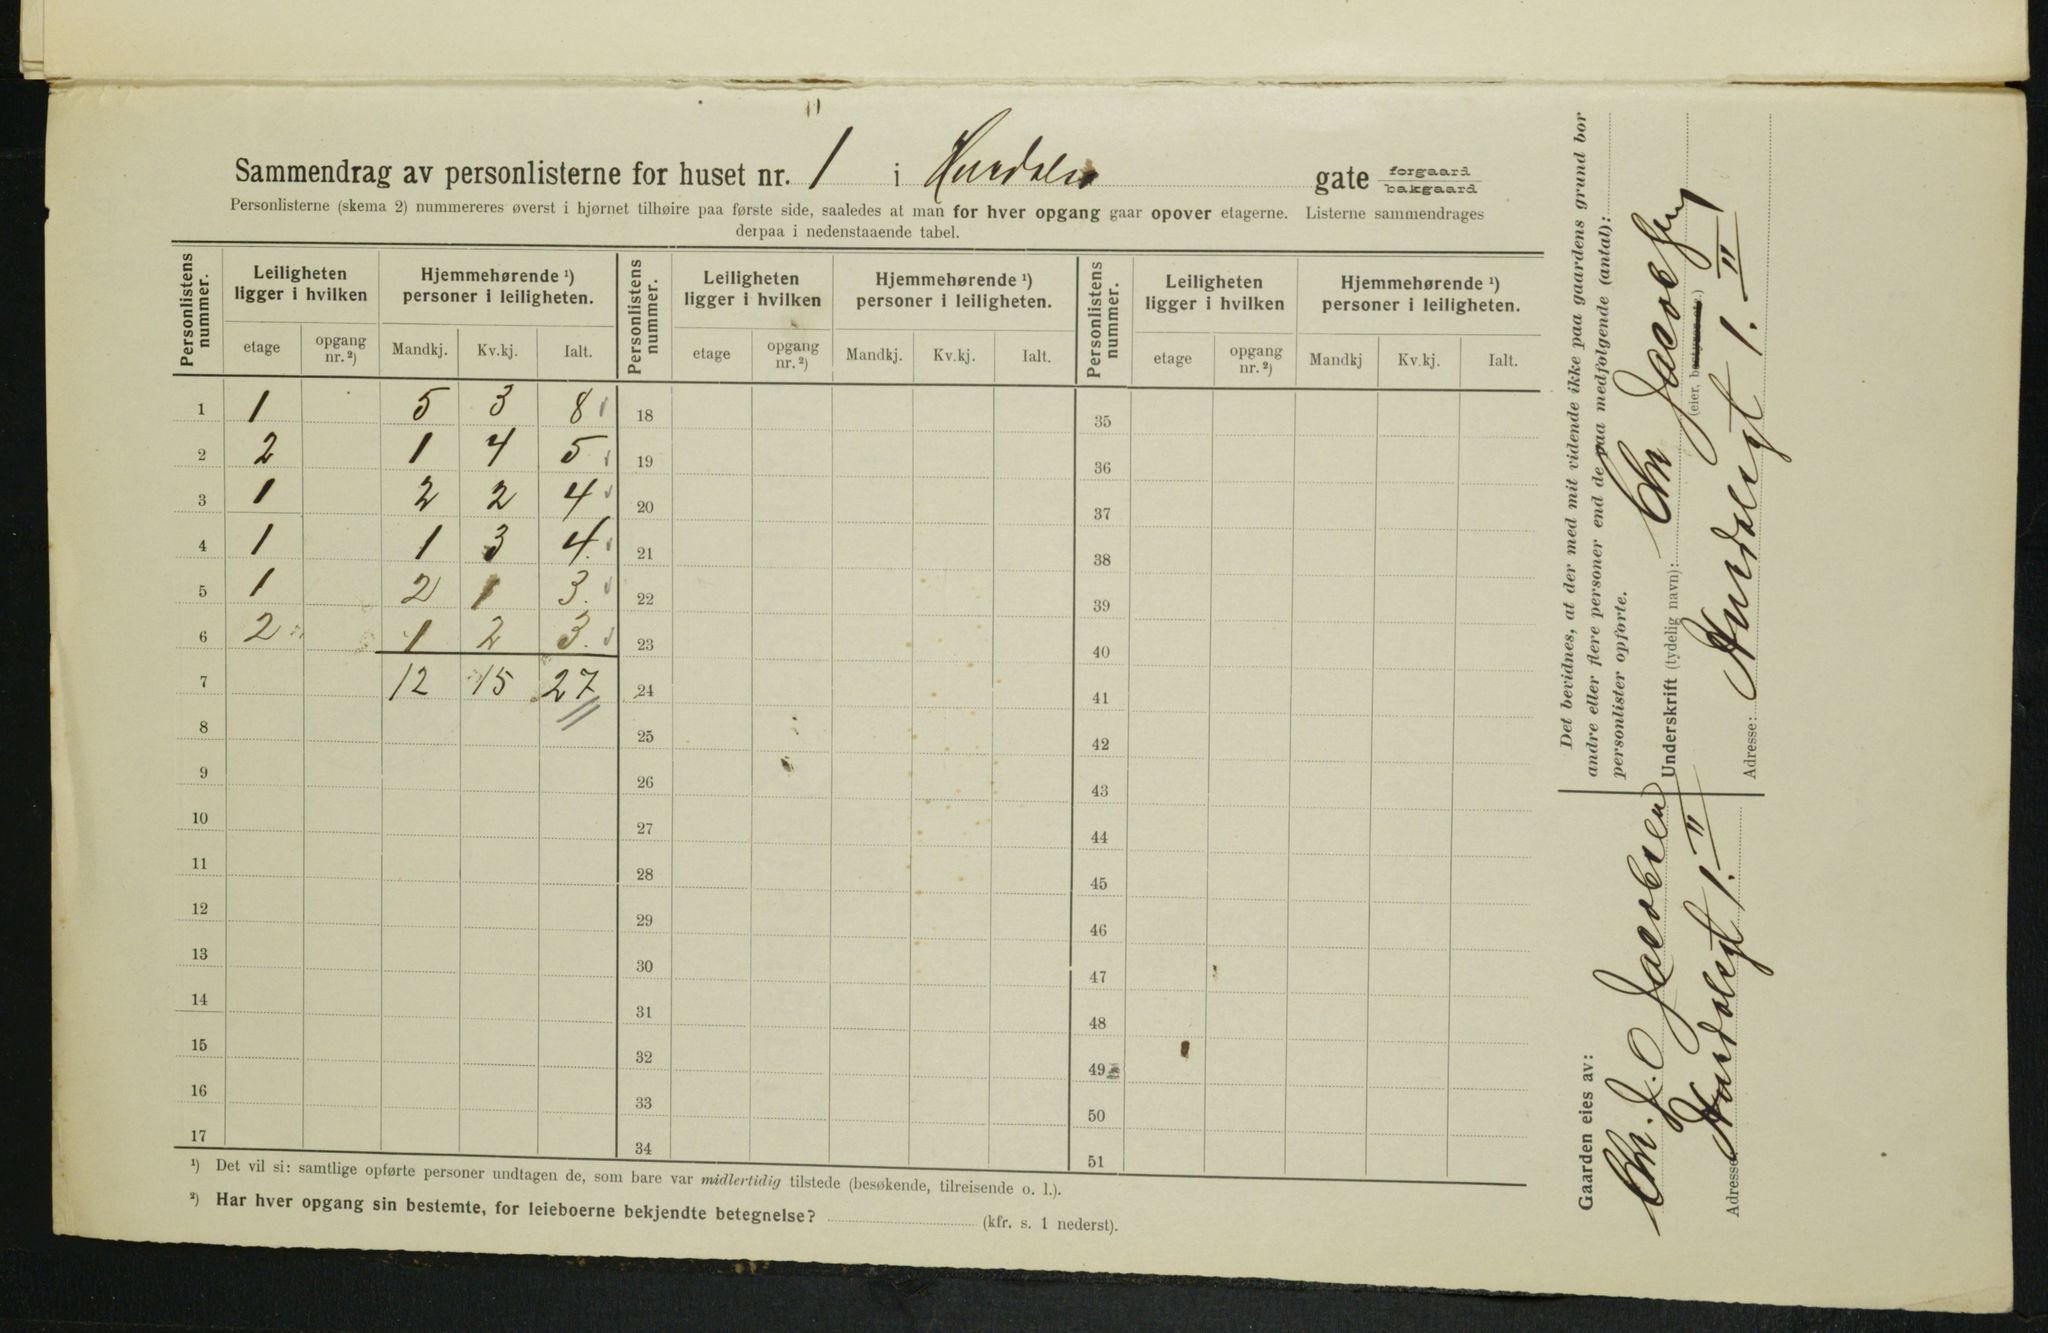 Sammendrag av personlisterne for huset nr. 1 i Hurdals gate forgaard bakgaard
Personlisterne (skema 2) nummereres øverst i hjørnet tilhøire paa første side, saaledes at man for hver opgang gaar opover etagerne. Listerne sammendrages
derpaa i nedenstaaende tabel.
Personlistens nummer. Leiligheten ligger i hvilken Hjemmehørende ¹) personer i leiligheten. Personlistens nummer. Leiligheten ligger i hvilken Hjemmehørende ¹) personer i leiligheten. Personlistens nummer. Leiligheten ligger i hvilken Hjemmehørende ¹) personer i leiligheten.
etage opgang nr. ²) Mandkj. Kv.kj. Ialt. etage opgang nr. ²) Mandkj. Kv.kj. Ialt. etage opgang nr. ²) Mandkj Kv.kj. Ialt.
1 1 5 3 8 18 35
2 2 1 4 5 19 36
3 1 2 2 4 20 37
4 1 1 3 4. 21 38
5 1 2 1 3. 22 39
6 2 1 2 3. 23 40
7 12 15 27 24 41
8 25 42
9 26 43
10 27 44
11 28 45
12 29 46
13 30 47
14 31 48
15 32 49
16 33 50
17 34 51
¹) Det vil si: samtlige opførte personer undtagen de, som bare var midlertidig tilstede (besøkende, tilreisende o. l.).
²) Har hver opgang sin bestemte, for leieboerne bekjendte betegnelse? (kfr. s. 1 nederst).
Gaarden eies av:
Chr. J. C. Jacobsen
Adresse: Hurdalsgt. 1. II
Det bevidnes, at der med mit vidende ikke paa gaardens grund bor
andre eller flere personer end de paa medfølgende (antal):
personlister opførte.
Underskrift (tydelig navn): Chr Jacobsen
(eier, bestyrer etc.)
Adresse: Hurdalsgt 1. II